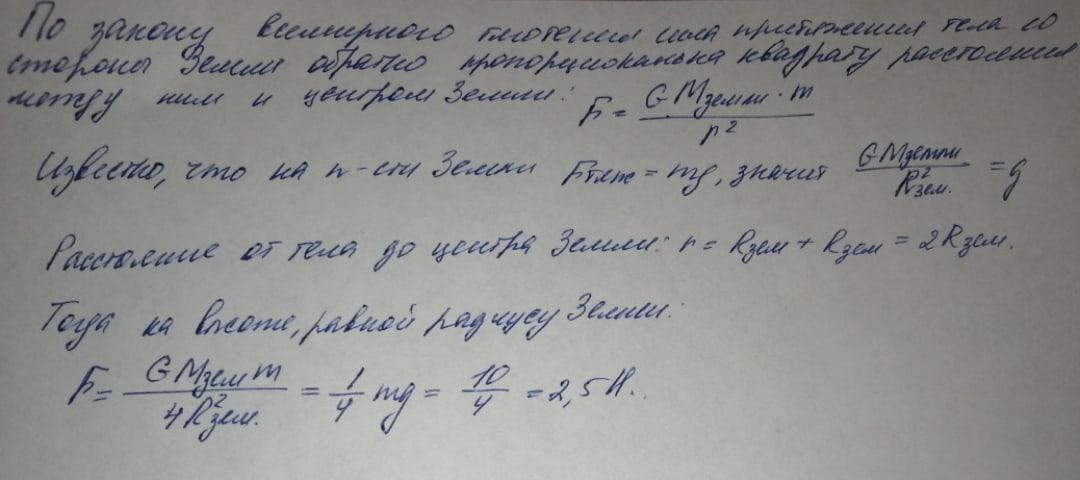 По закону всемирного тяготения сила притяжения тела со
стороны Земли обратно пропорциональна квадрату расстояния
между ним и центром Земли: F = GMземли · m / r²
Известно, что на п-сти Земли Fтяж = mg, значит GMземли / R²зем. = g
Расстояние от тела до центра Земли: r = Rзем + Rзем = 2Rзем.
Тогда на высоте, равной радиусу Земли:
F = GMзем m / 4R²зем. = 1/4 mg = 10/4 = 2,5 Н.